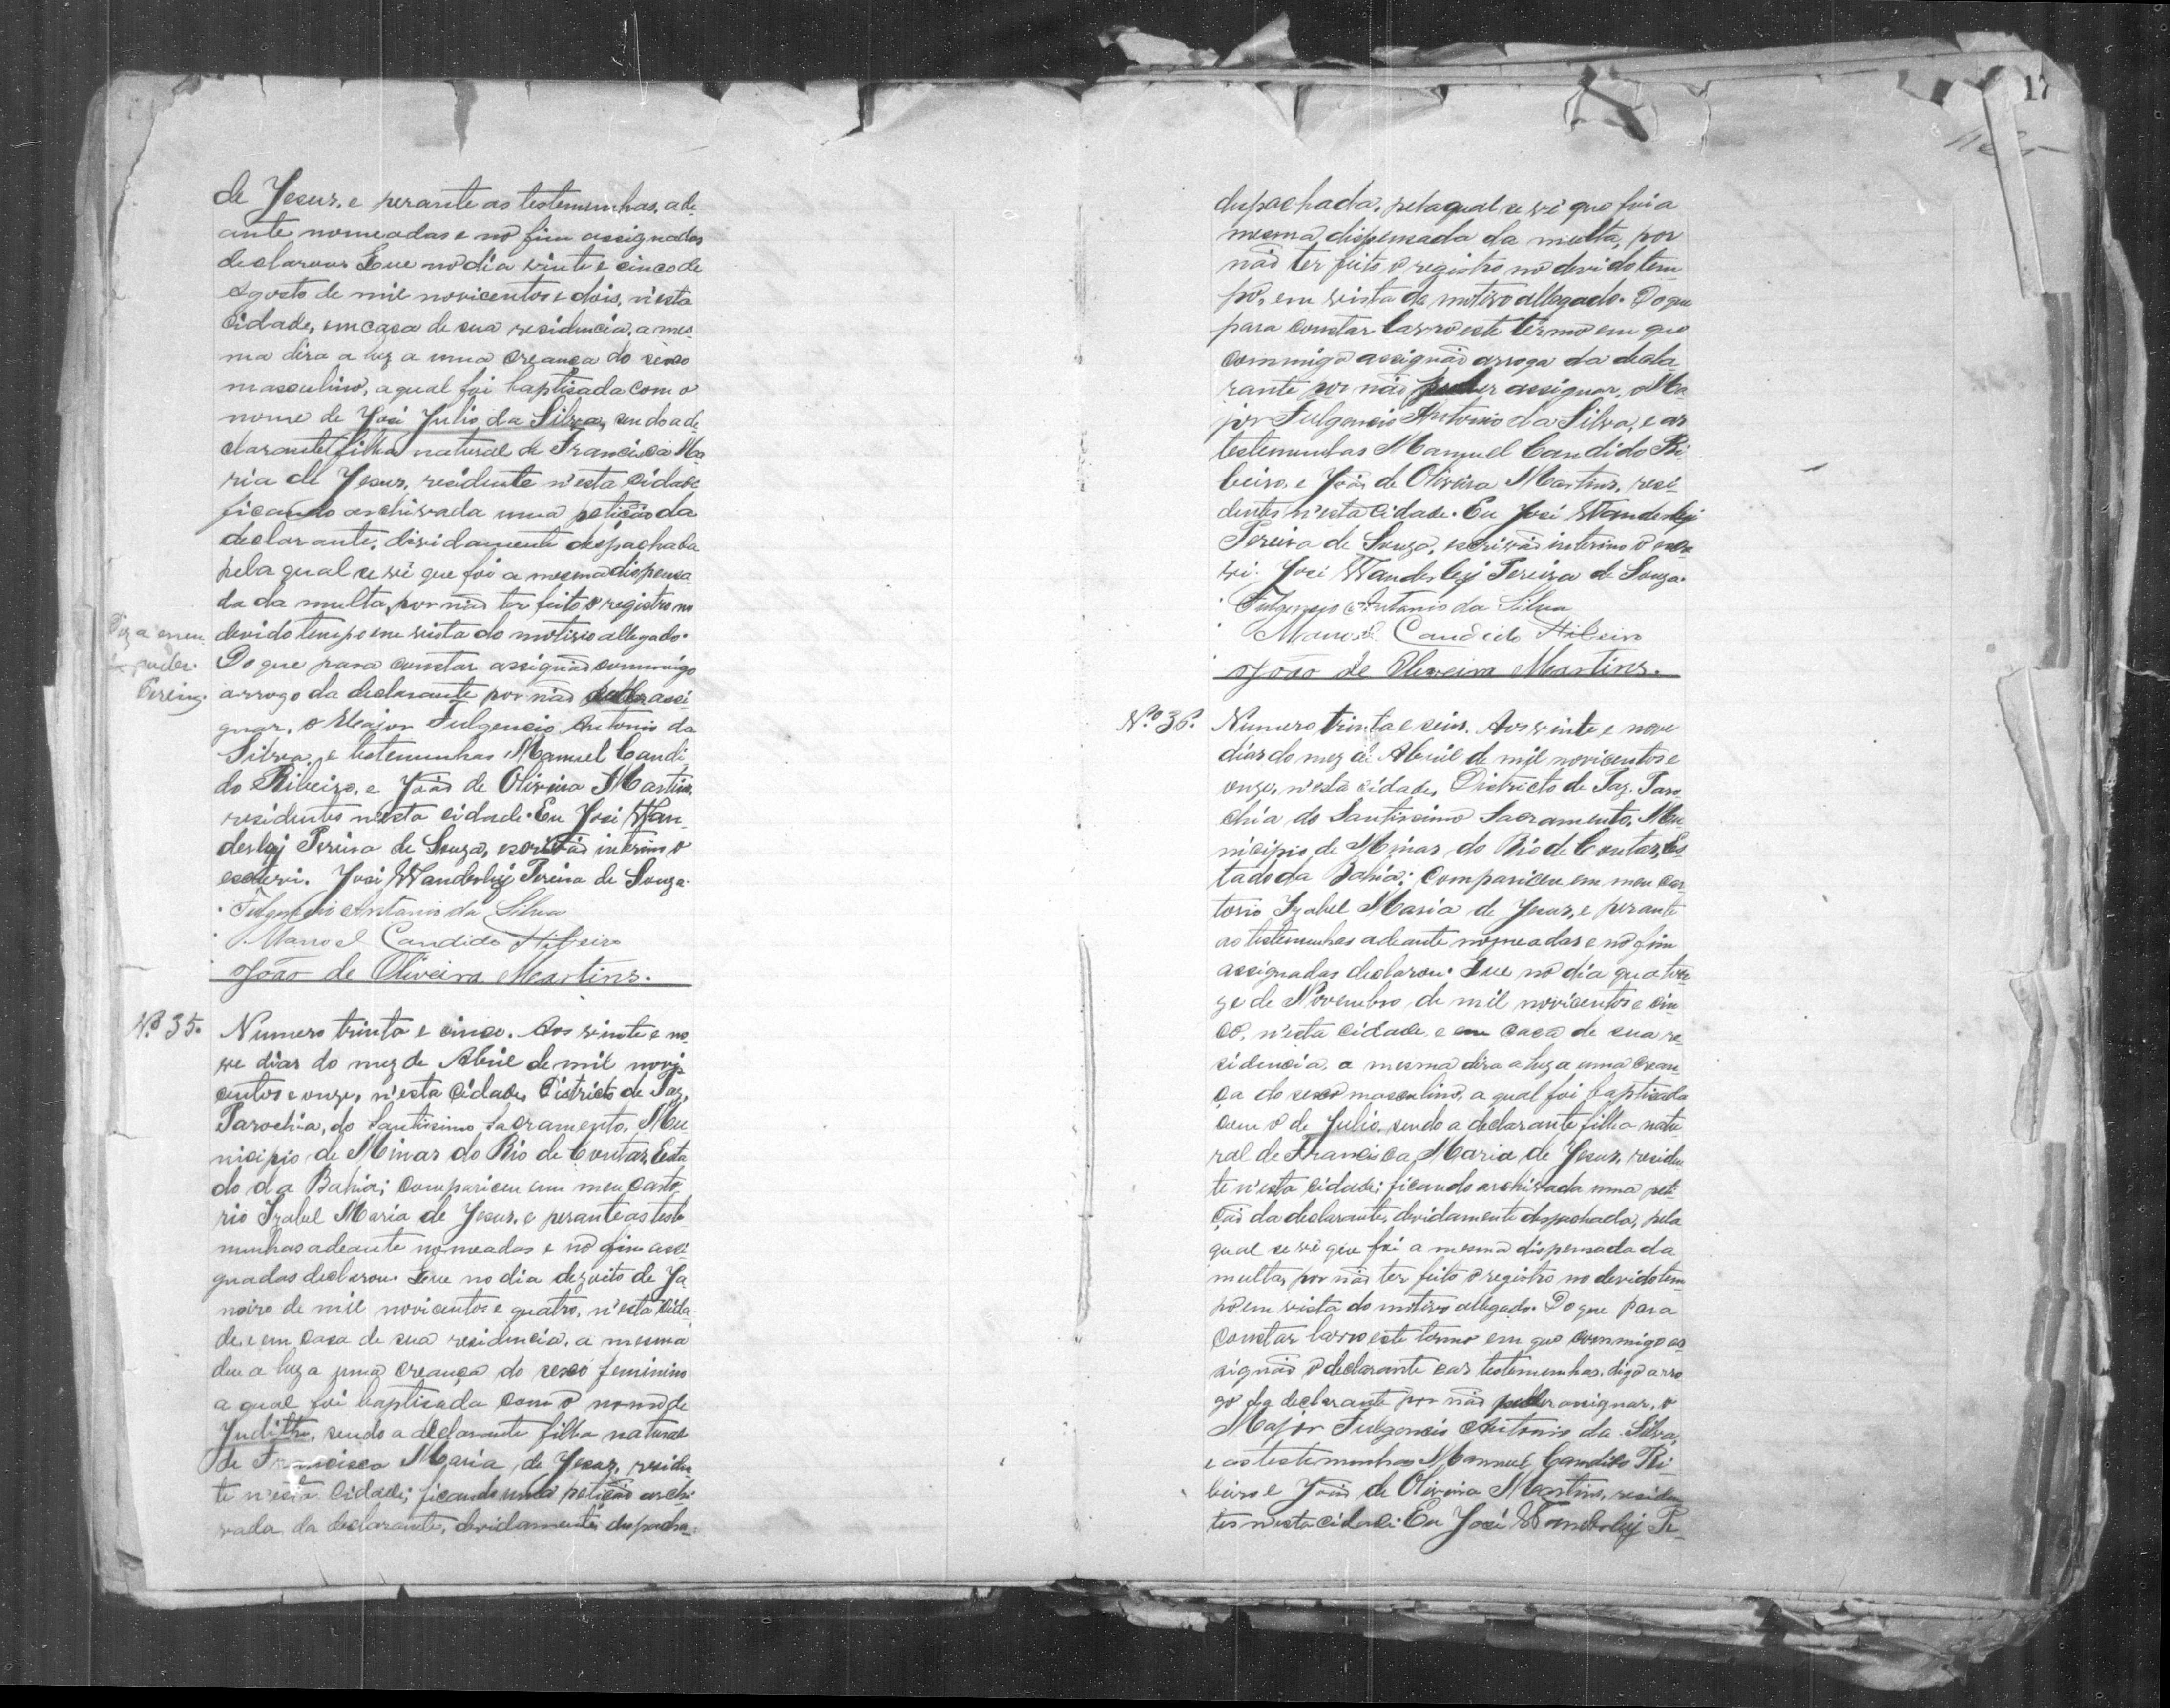 de Jesus, e perante as testemunhas, ade-
ante nomeadas e no fim assignadas
declarou Que no dia vinte e cinco de
Agosto de mil novicentos e dois, n'esta
Cidade, em casa de sua residencia, a mes-
ma dera a luz a uma creança do sexo
masculino, a qual foi baptisada com o
nome de José Julio da Silva, sendo a de-
clarante filha natural de Francisca Ma-
ria de Jesus, residente n'esta Cidade
ficando archivada uma petição da
declarante, dividamente despachada
pela qual se vê que foi a mesma dispensa-
da da multa, por não ter feito o registro no
devido tempo em vista do motivo allegado.
Do que para constar assignão commigo
arrogo da declarante por não assi-
gnar, o Major Fulgencio Antonio da
Silva, e testemunhas Manuel Candi-
do Ribeiro, e João de Oliveira Martins,
residentes n'esta cidade. Eu José Wan-
derley Pereira de Souza, escrivão interino o
escrevi. José Wanderley Pereira de Souza.
Fulgencio Antonio da Silva
Manoel Candido Ribeiro
João de Oliveira Martins.
Nº 35. Numero trinta e cinco. Aos vinte e no-
ve dias do mez de Abril de mil novi-
centos e onze, n'esta Cidade, Districto de Paz,
Parochia, do Santissimo Sacramento, Mu-
nicipio de Minas do Rio de Contas, Esta-
do da Bahia; compariceu em meu Carto-
rio Izabel Maria de Jesus, e perante as teste-
munhas adeante nomeadas e no fim assi-
gnadas declarou. Que no dia dezoito de Ja-
neiro de mil novicentos e quatro, n'esta Cida-
de, e em casa de sua residencia, a mesma
deu a luz a uma creança do sexo feminino
a qual foi baptisada com o nome de
Judith, sendo a declarante filha natural
de Francisca Maria de Jesus, residen-
te n'esta Cidade; ficando uma petição archi-
vada da declarante, devidamente despacha-
despachada, pela qual se vê que foi a
mesma dispensada da multa, por
não ter feito o registro no devido tem-
po, em vista do motivo allegado. Do que
para constar lavro este termo em que
commigo assignão arrogo da decla-
rante por não poder assignar, o Ma-
jor Fulgencio Antonio da Silva, e as
testemunhas Manuel Candido Ri-
beiro, e João de Oliveira Martins, resi-
dentes n'esta Cidade. Eu José Wanderley
Pereira de Souza, escrivão interino o escre-
vi. José Wanderley Pereira de Souza.
Fulgencio Antonio da Silva
Manoel Candido Ribeiro
João de Oliveira Martins.
Nº 36. Numero trinta e seis. Aos vinte e nove
dias do mez de Abril de mil novicentos e
onze, n'esta cidade, Districto de Paz. Paro-
chia do Santissimo Sacramento, Mu-
nicipio de Minas do Rio de Contas, Es-
tado da Bahia; compariceu em meu Car-
torio Izabel Maria de Jesus, e perante
as testemunhas adeante nomeadas e no fim
assignadas declarou. Que no dia quator-
ze de Novembro de mil novicentos e cin-
co, n'esta cidade, e em casa de sua re-
sidencia, a mesma dera a luz a uma crean-
ça do sexo masculino, a qual foi baptisada
com o de Julio, sendo a declarante filha natu-
ral de Francisca Maria de Jesus, residen-
te n'esta Cidade; ficando archivada uma peti-
ção da declarante, devidamente despachada, pela
qual se vê que foi a mesma dispensada da
multa, por não ter feito o registro no devido tem-
po em vista do motivo allegado. Do que para
Constar lavro este termo em que commigo as-
signão o declarante e as testemunhas, digo arro-
go da declarante por não poder assignar, o
Major Fulgencio Antonio da Silva,
e as testemunhas Manuel Candido Ri-
beiro e João de Oliveira Martins, residen-
tes n'esta cidade. Eu José Wanderley Pe-
17